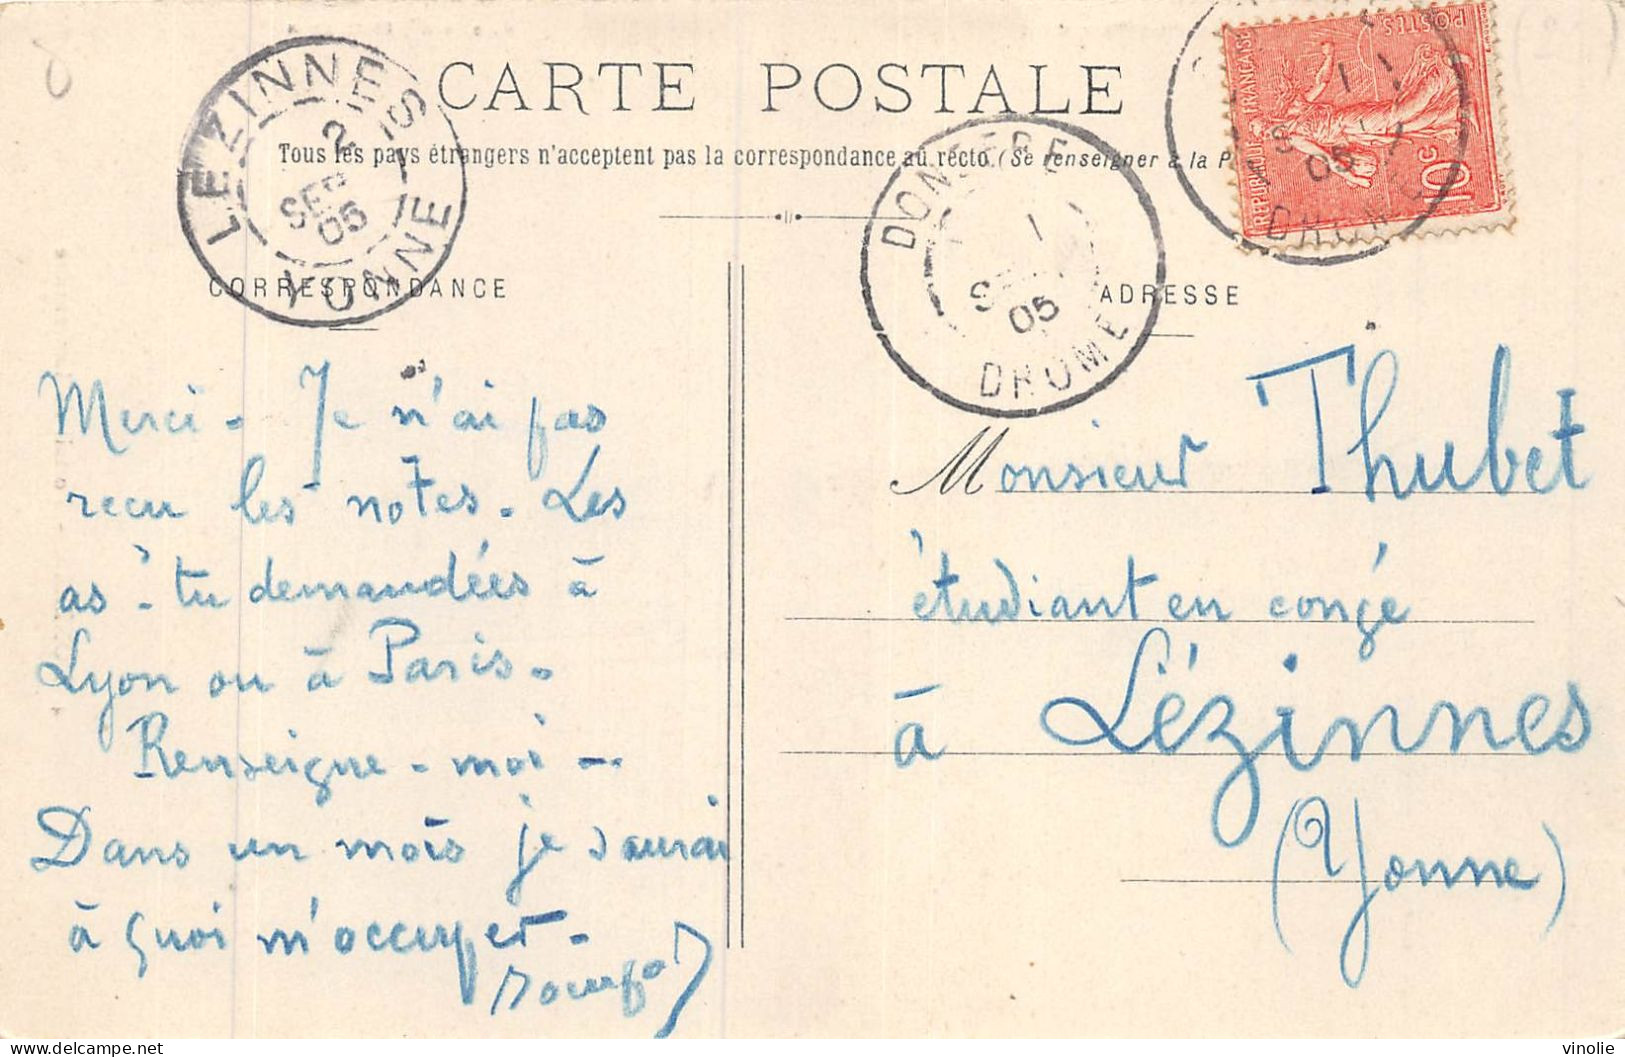 CARTE POSTALE
Tous les pays étrangers n'acceptent pas la correspondance au recto. (Se renseigner à la P
LEZINNES
2
SEP
05
YONNE
DONZERE
1
SE
05
DROME
1
S
05
DROME
REPUBLIQUE FRANÇAISE
POSTES
10c
CORRESPONDANCE
ADRESSE
Merci - Je n'ai pas
recu les notes. Les
as-tu demandées à
Lyon ou à Paris -
Renseigne-moi -
Dans un mois je saurai
à quoi m'occuper -
Monsieur Thubet
étudiant en congé
à Lézinnes
(Yonne)
vinolie